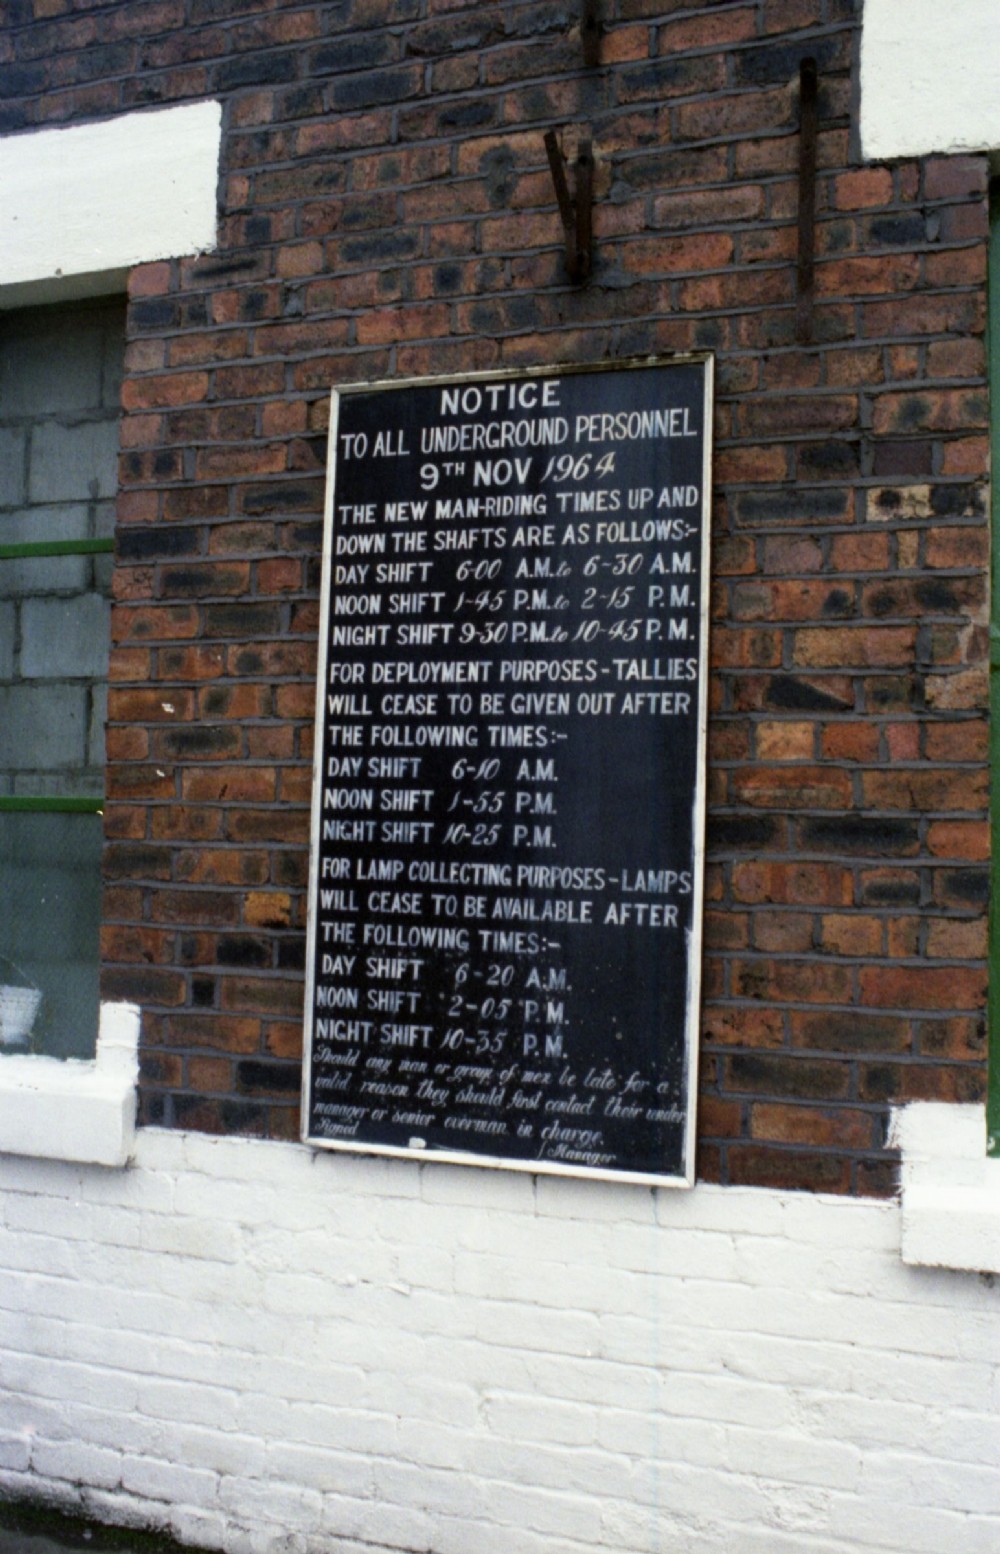 NOTICE
TO ALL UNDERGROUND PERSONNEL
9TH NOV 1964
THE NEW MAN-RIDING TIMES UP AND
DOWN THE SHAFTS ARE AS FOLLOWS:-
DAY SHIFT 6-00 A.M. to 6-30 A.M.
NOON SHIFT 1-45 P.M. to 2-15 P.M.
NIGHT SHIFT 9-30 P.M. to 10-45 P.M.
FOR DEPLOYMENT PURPOSES - TALLIES
WILL CEASE TO BE GIVEN OUT AFTER
THE FOLLOWING TIMES:-
DAY SHIFT 6-10 A.M.
NOON SHIFT 1-55 P.M.
NIGHT SHIFT 10-25 P.M.
FOR LAMP COLLECTING PURPOSES - LAMPS
WILL CEASE TO BE AVAILABLE AFTER
THE FOLLOWING TIMES:-
DAY SHIFT 6-20 A.M.
NOON SHIFT 2-05 P.M.
NIGHT SHIFT 10-35 P.M.
Should any man or group of men be late for a
valid reason they should first contact their under
manager or senior overman in charge.
Signed
Manager